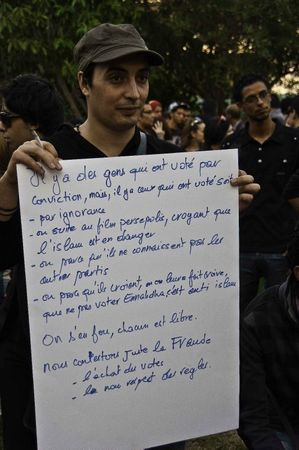 Il y a des gens qui ont voté par
conviction, mais, il y a ceux qui ont voté soit
- par ignorance
- ou suite au film persepolis, croyant que
l'islam est en danger
- ou parce qu'il ne connaissent pas les
autres partis
- ou parce qu'ils croient, on leurs fait croire,
que ne pas voter Ennahdha, c'est anti islam
On s'en fou, chacun est libre.
nous contestons juste la Fraude
- l'achat des votes
- le non respect des regles.